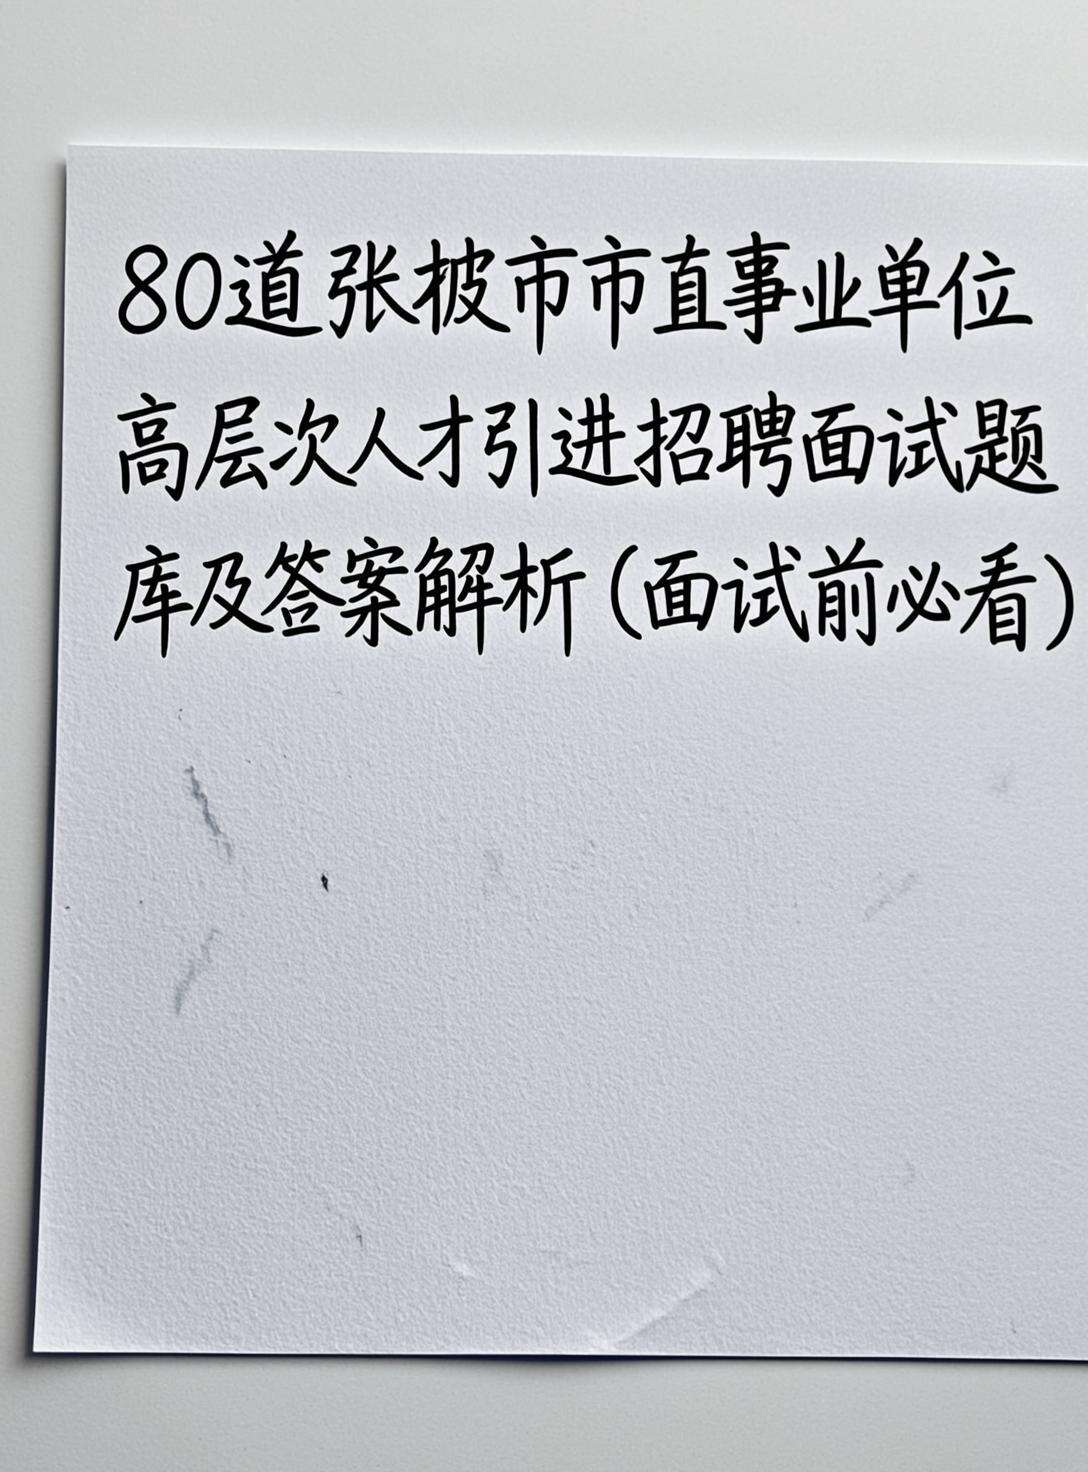 80道张披市市直事业单位
高层次人才引进招聘面试题
库及答案解析(面试前必看)